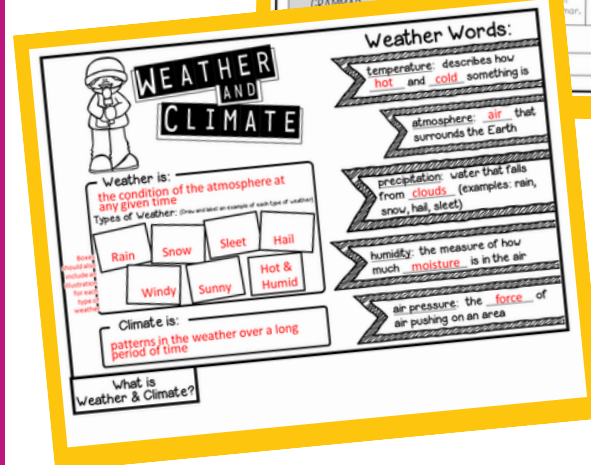 GRAMMAR
mar.
WEATHER
AND
CLIMATE
Weather is:
the condition of the atmosphere at
any given time
Types of Weather: (Draw and label an example of each type of weather)
Rain
Snow
Sleet
Hail
Windy
Sunny
Hot &
Humid
Boxes
should also
include an
illustration
for each
type of
weather
Climate is:
patterns in the weather over a long
period of time
What is
Weather & Climate?
Weather Words:
temperature: describes how
hot and cold something is
atmosphere: air that
surrounds the Earth
precipitation: water that falls
from clouds (examples: rain,
snow, hail, sleet)
humidity: the measure of how
much moisture is in the air
air pressure: the force of
air pushing on an area